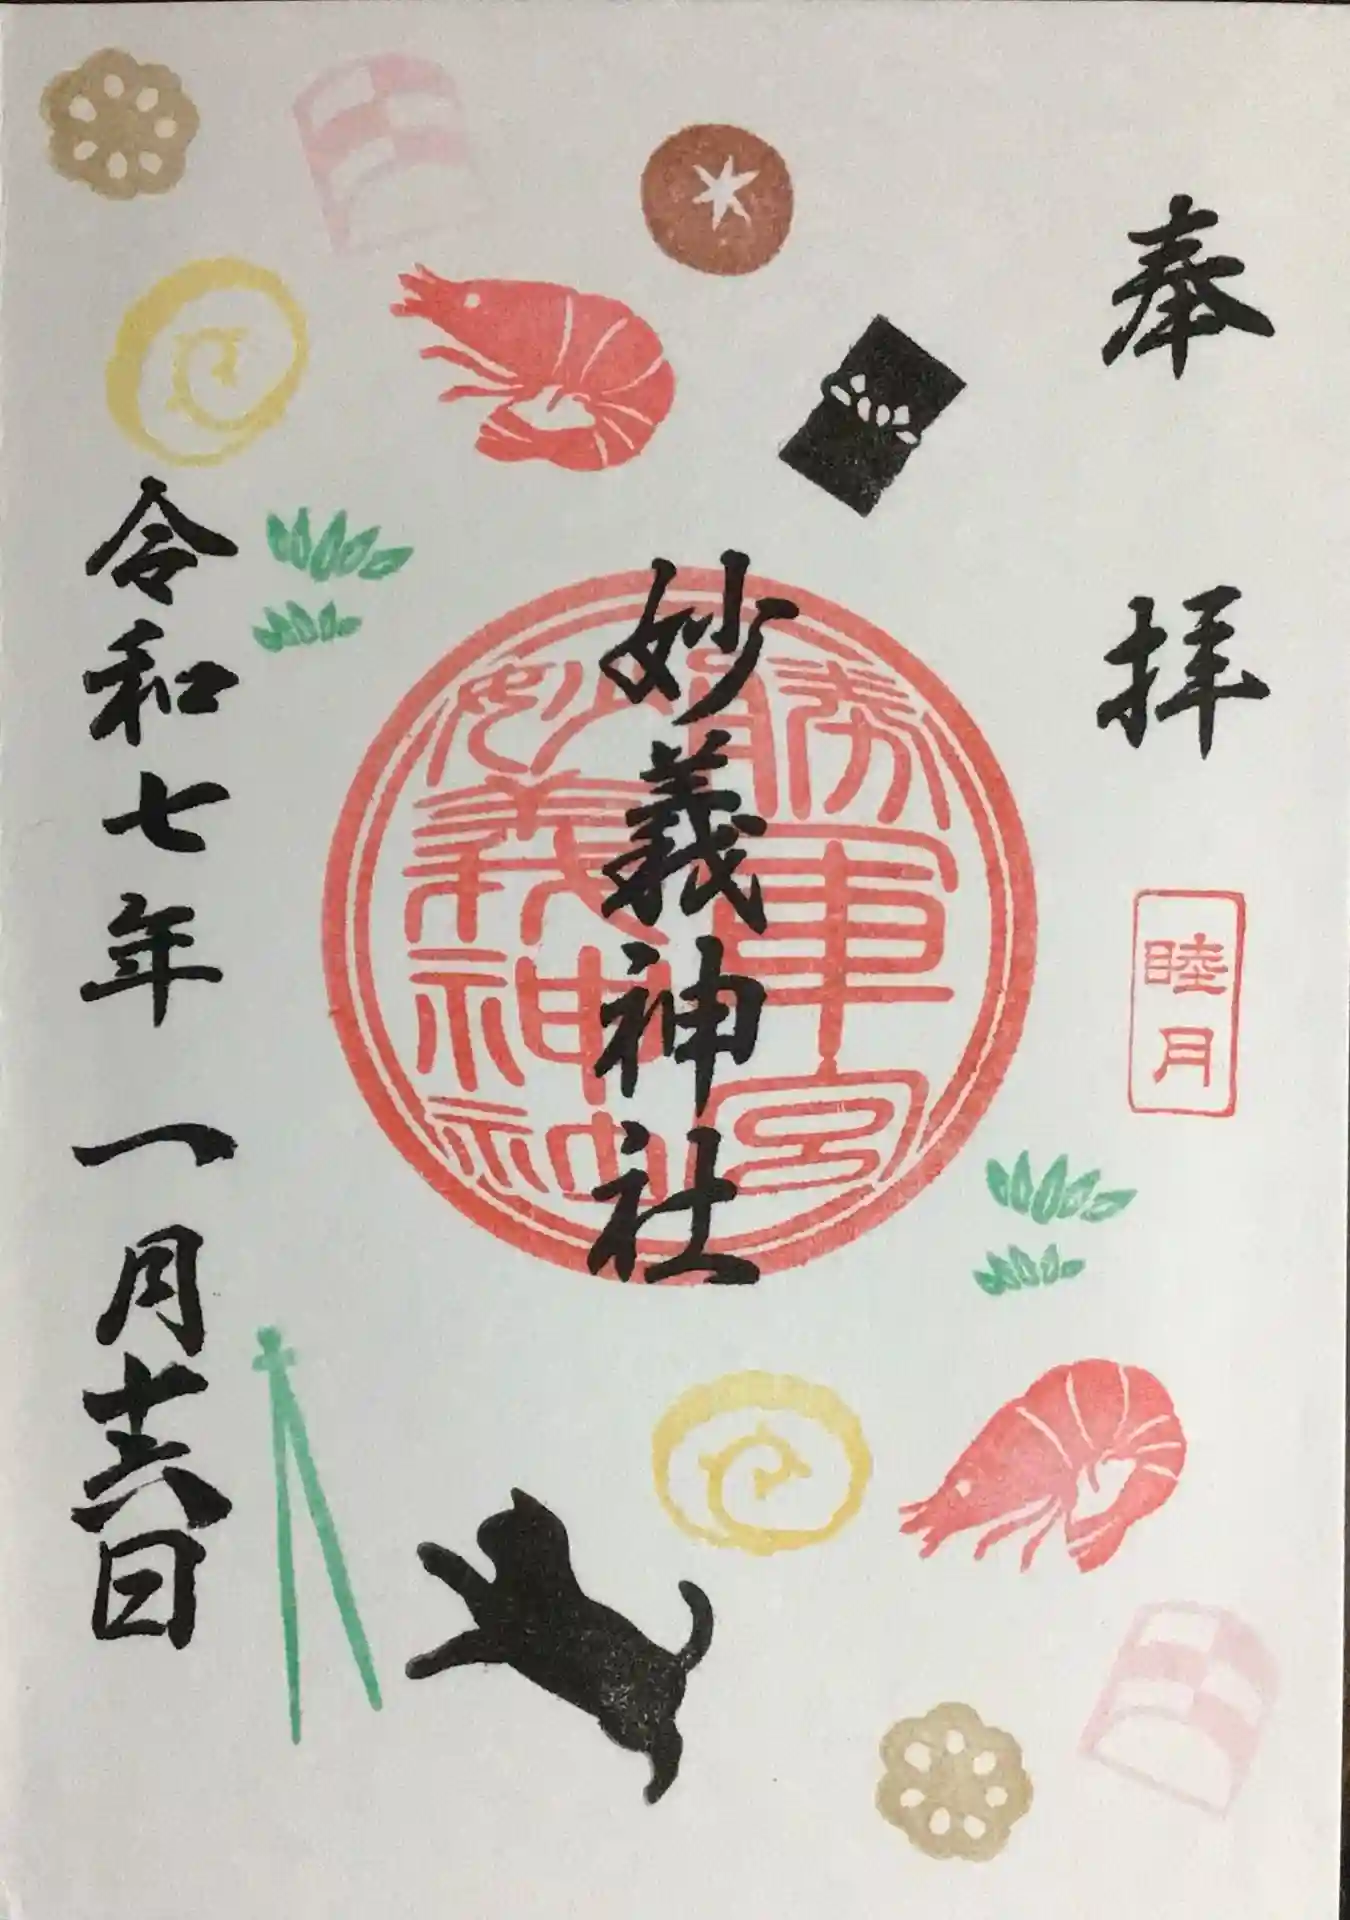 奉拝
睦月
妙義神社
勝軍宮
妙義神社
令和七年一月十六日